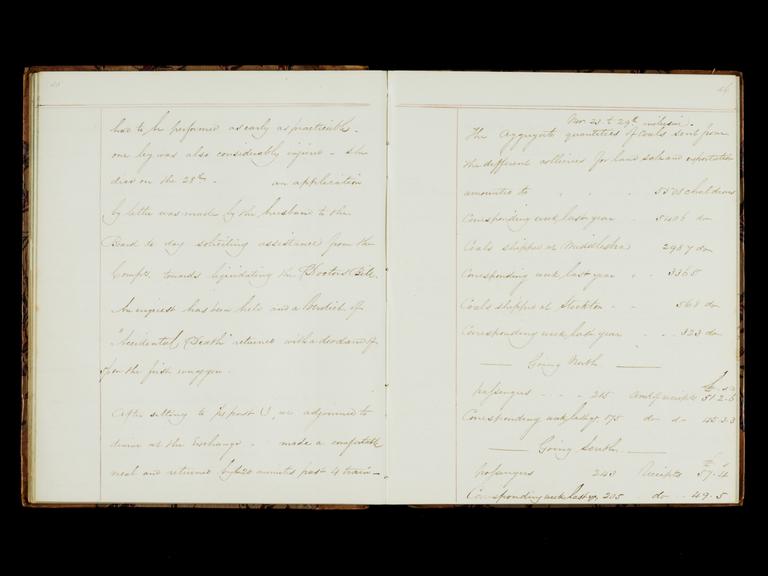 had to be performed as early as practicable -
one leg was also considerably injured - she
died on the 28th - an application
by letter was made by the husband to the
Board to day soliciting assistance from the
Compy. towards liquidating the Doctors Bill.
An inquest has been held and a Verdict of
"Accidental Death" returned with a deodand of
on the first waggon.
After sitting to ½ past 1, we adjourned to
dine at the Exchange - made a comfortable
meal and returned by 20 minutes past 4 train -
46
Nov. 23 to 29th inclusive.
The Aggregate quantities of Coals sent from
the different collieries for land sale and exportation
amounted to 5508 chaldrons
Corresponding week last year - 5406 do
Coals shipped at Middlesbro 2987 do
Corresponding week last year - 3368
Coals shipped at Stockton - - 568 do
Corresponding week last year - - 323 do
Going North
£ s d
Passengers - - - 215 and receipts 51.2.6
Corresponding week last yr. 175 do do 45.3.3
Going South
£ s
Passengers 243 Receipts 57.4
Corresponding week last yr. 205 do - 49.5